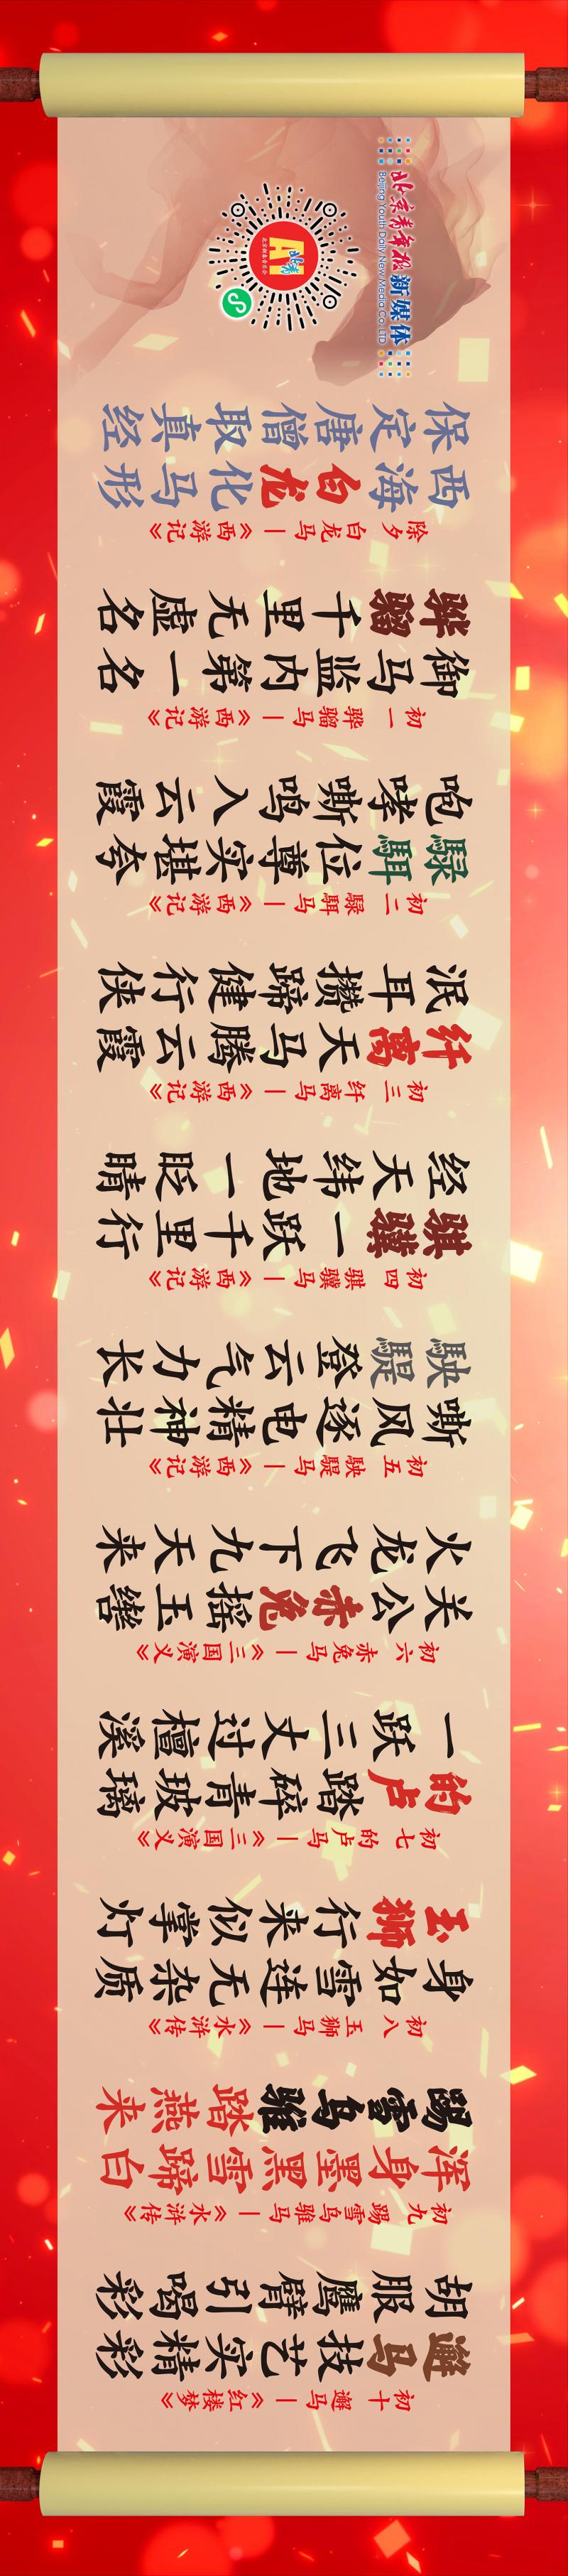 北京青年报 新媒体
Beijing Youth Daily New Media Co. LTD
北青
AI
除夕 白龙马—《西游记》
西海白龙化马形
保定唐僧取真经
初一 骅骝马—《西游记》
御马监内第一名
骅骝千里无虚名
初二 騄駬马—《西游记》
騄駬位尊实堪夸
咆哮嘶鸣入云霞
初三 纤离马—《西游记》
纤离天马腾云霞
泯耳攒蹄健行侠
初四 骐骥马—《西游记》
骐骥一跃千里行
经天纬地一眨睛
初五 駃騠马—《西游记》
嘶风逐电精神壮
駃騠登云气力长
初六 赤兔马—《三国演义》
关公赤兔摇玉辔
火龙飞下九天来
初七 的卢马—《三国演义》
的卢踏碎青玻璃
一跃三丈过檀溪
初八 玉狮马—《水浒传》
身如雪连无杂质
玉狮行来似掌灯
初九 踢雪乌骓马—《水浒传》
浑身墨黑雪蹄白
踢雪乌骓踏燕来
初十 邂马—《红楼梦》
邂马技艺实精彩
胡服鹰臂引喝彩